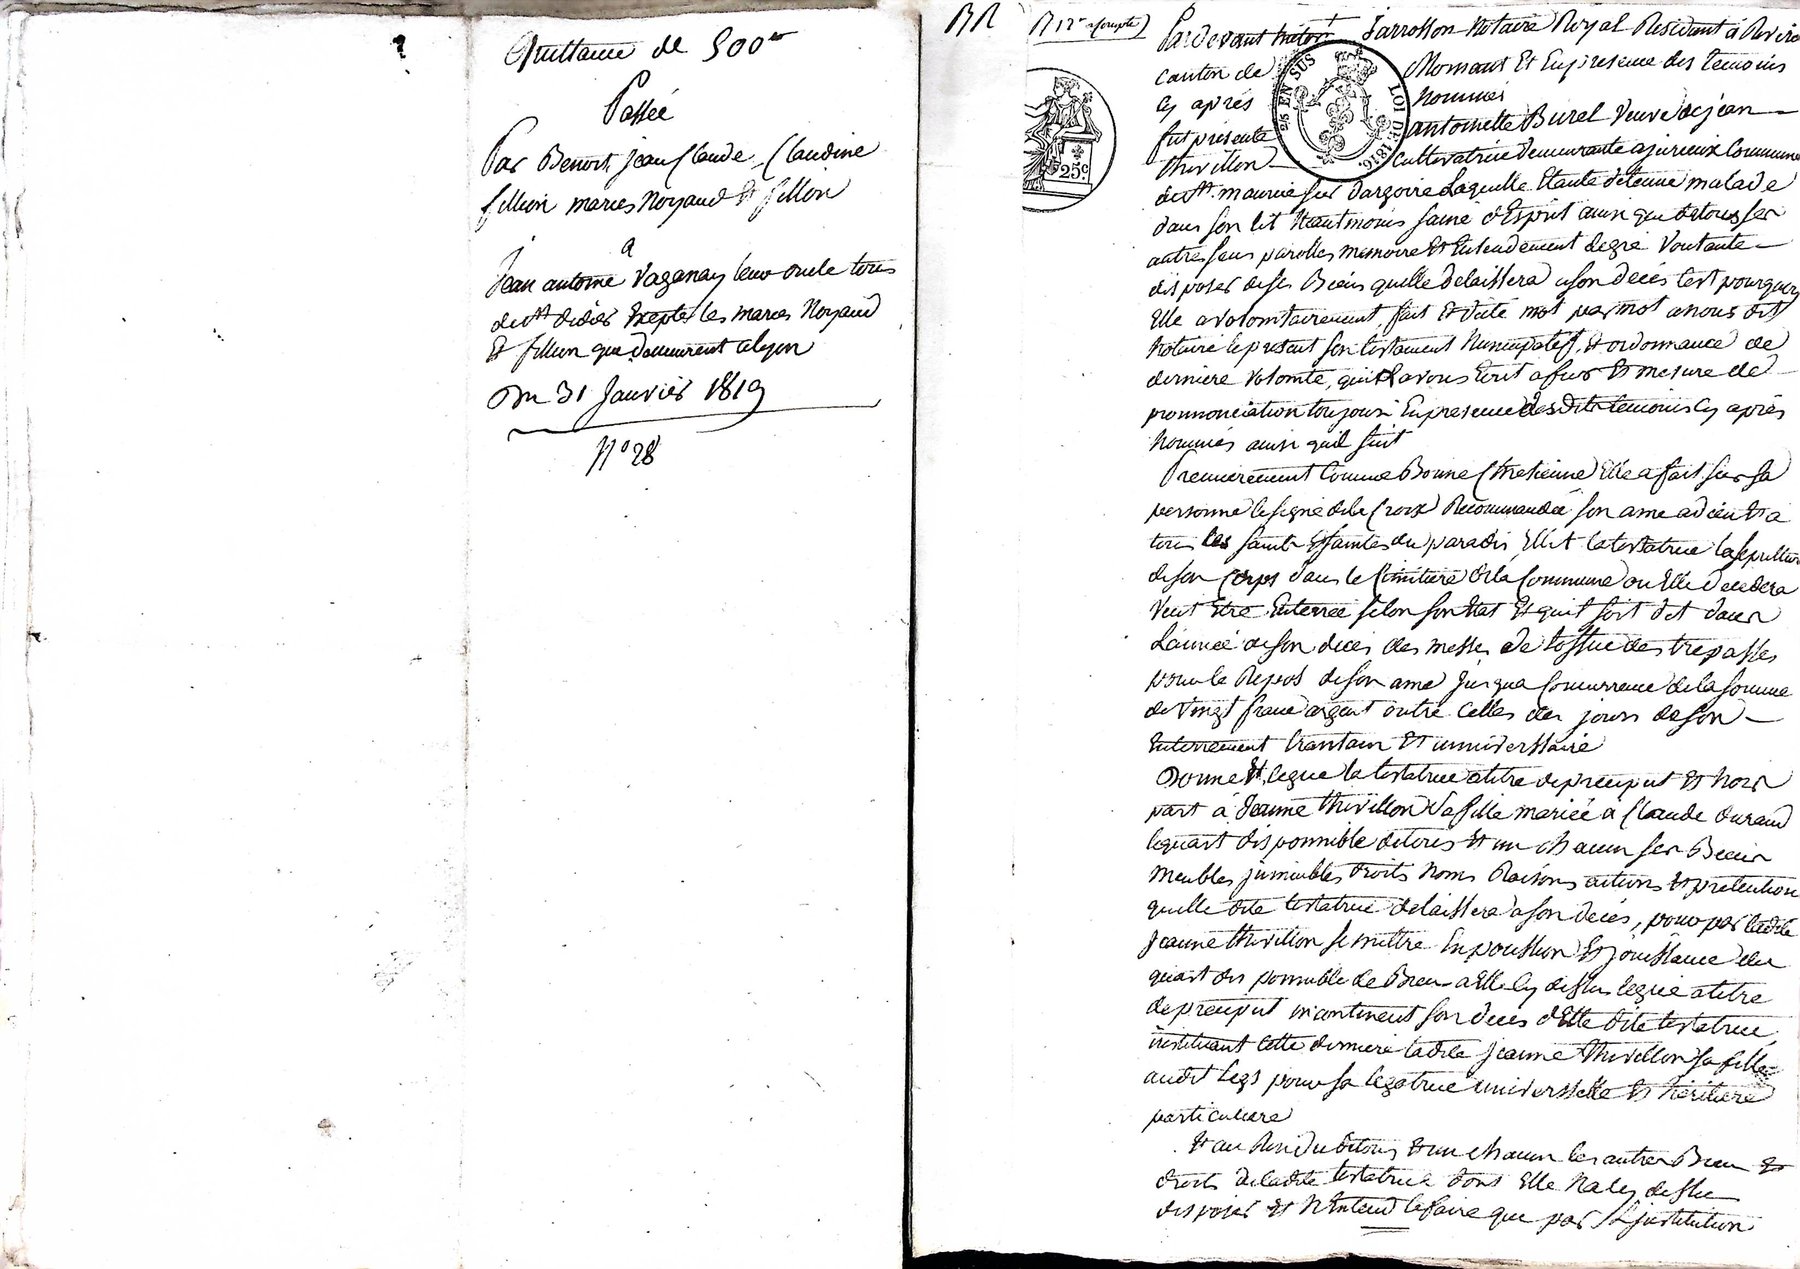 Quittance de 500 ᶠʳ
Passée
Par Benoit, jean Claude, Claudine
fillion mariés Noyaud Et fillion
a
Jean antoine Vaganay leur oncle tous
de St didier Excepté les mariés Noyaud
Et fillion que demeurent alyon
Du 31 Janvier 1819
N° 28
Pardevant Jarrosson Notaire Royal Residant a Rivire
canton de Mornant Et En presence des temoins
cy aprés Nommés
fut presente antoinette Burel Veuve de jean
thivillon cultivatrice demeurante a jurieux Commune
de St. maurice sur dargoire Laquelle Etante detenue malade
dans son lit Neautmoins saine d'Esprit ainsi que de tous ses
autres sens parolles memoire Et Entendement de gré Voulante
disposer de ses Biens quelle delaissera a son decés C'est pourquoy
Elle a volontairement fait Et dicté mot par mot a nous dit
Notaire le present son testament Nuncupatif, Et ordonnance de
derniere Volonté, quil avons Ecrit a fur Et mesure de
prononciation toujours En presence des Dits temoins Cy aprés
Nommés ainsi quil suit
Premierement Comme Bonne Chretienne Elle a fait sur sa
personne le signe de la Croix Recommandée son ame a dieu Et a
tous les saints Et saintes du paradis Elit la testatrice la sepulture
de son Corps dans le Cimitiere de la Commune ou Elle decedera
Veut Etre Enterrée selon son Etat Et quil soit dit dans
L'année de son decés des messes de trepasses
pour le Repos de son ame jusqua Concurrence de la somme
de Vingt francs argent outre Celles des jours de son
Enterrement trantain Et anniverssaire
Donne Et legue la testatrice a titre de preciput Et hors
part à Jeanne thivillon sa fille mariée à Claude durand
le quart disponnible de tous Et un chacun ses Biens
Meubles jmmeubles droits Noms Raisons actions Et pretentions
quelle dite testatrice delaissera a son decés, pour par ladite
Jeanne thivillon se mettre En possession Et jouissance du
quart disponnible de Biens a Elle Cy dessus legué a titre
de preciput incontinent son decés d'Elle dite testatrice,
instituant Cette derniere ladite jeanne thivillon sa fille
audit legs pour sa legatrice universselle Et heritiere
particuliere
Et au Residu de tous Et un chacun les autres Biens Et
droits de ladite testatrice dont Elle Na Cy dessus
disposer Et N'Entend le faire que par L'jnstitution
25 EN SUS
LOI DE 1816.
25c